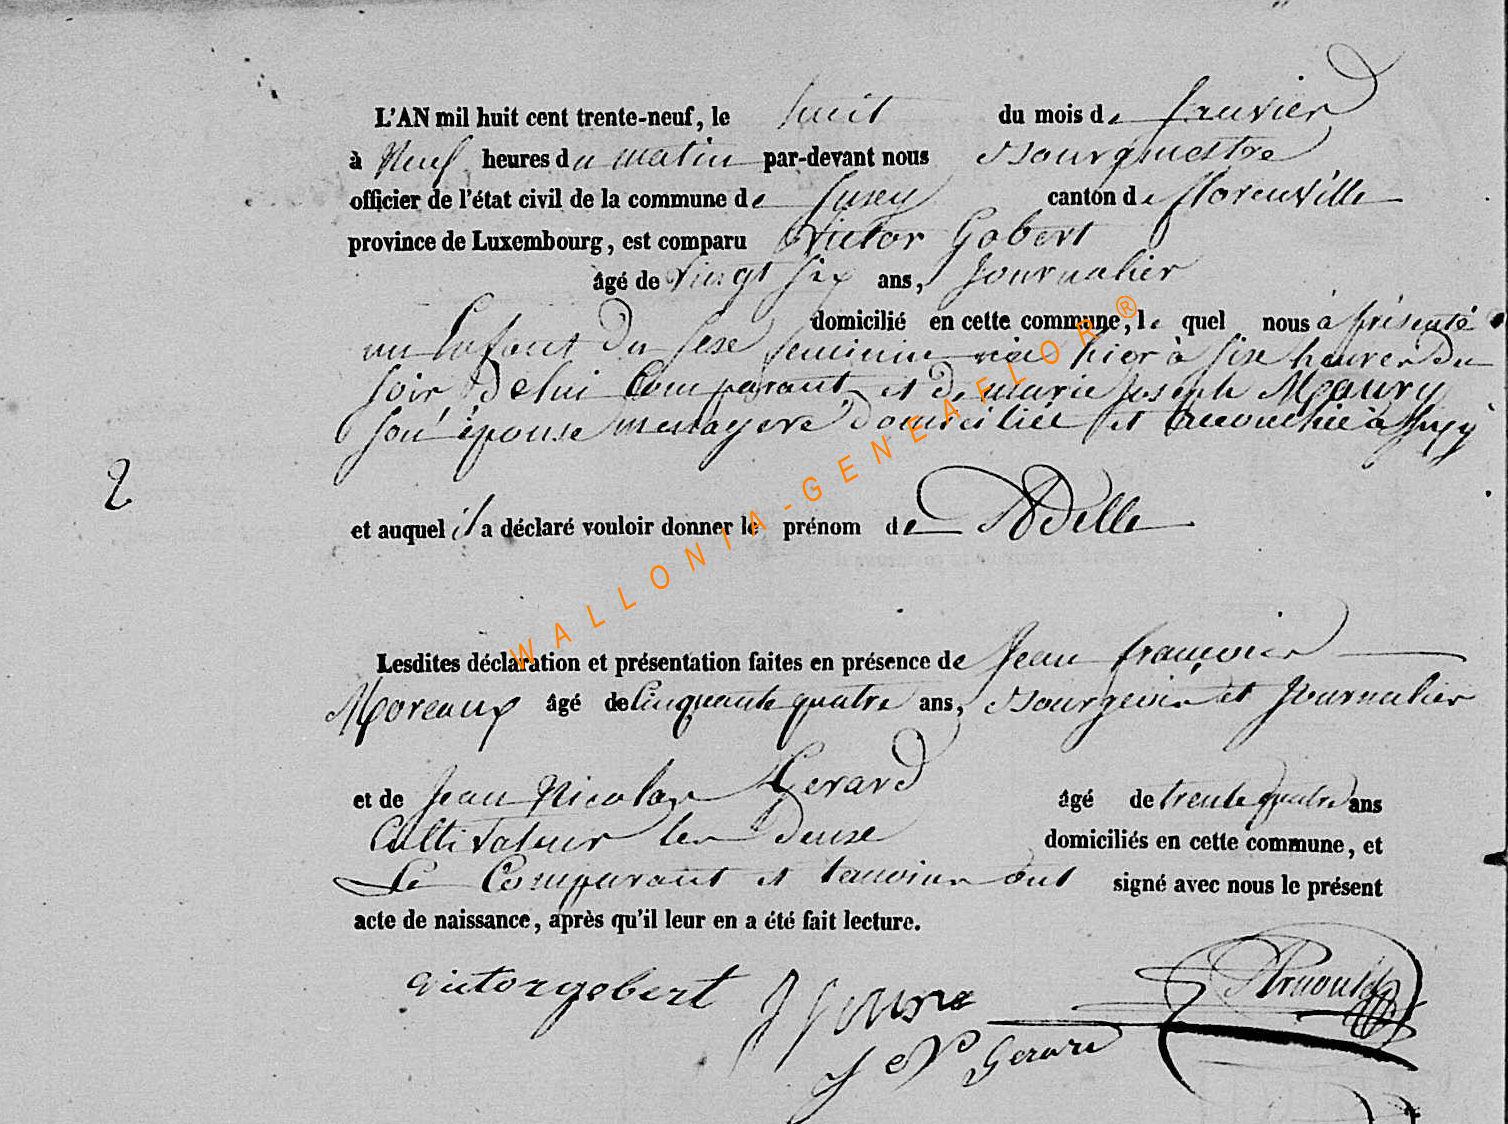 L'AN mil huit cent trente-neuf, le huit du mois de Janvier
à Neuf heures du matin par-devant nous Bourgmestre
officier de l'état civil de la commune de Suxey canton de florenville
province de Luxembourg, est comparu Victor Gobert
âgé de vingt six ans, Journalier
domicilié en cette commune, le quel nous à présenté
un Enfant du sexe feminin née hier à six heures du
soir De lui Comparant et De marie Joseph Maury
son épouse menagere domiciliée et accouchée à Suxy
2
et auquel il a déclaré vouloir donner le prénom de ADelle
Lesdites déclaration et présentation faites en présence de Jean francois
Moreaux âgé de Cinquante quatre ans, Bourgeois et Journalier
et de Jean Nicolas Gerard âgé de trente quatre ans
Cultivateur les Deuxe domiciliés en cette commune, et
Le Comparant et temoins ont signé avec nous le présent
acte de naissance, après qu'il leur en a été fait lecture.
victor gobert
J N Gerard
Arnould
WALLONIA-GENEAFLOR ®